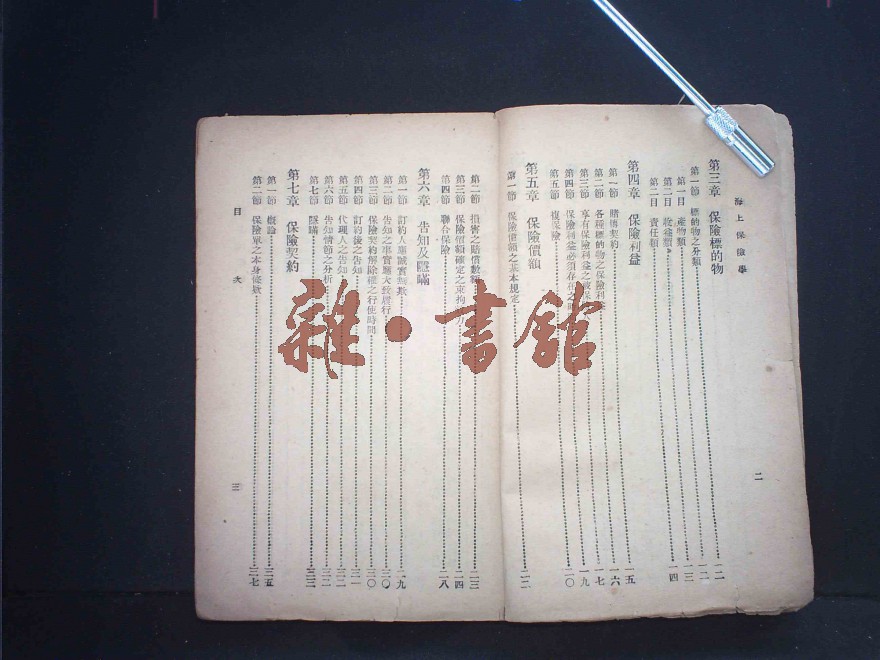 海上保險學
第三章 保險標的物
第一節 標的物之分類 一二
第一目 產物類 一二
第二目 收益類 一三
第三目 責任類 一四
第四章 保險利益 一五
第一節 賭博契約 一六
第二節 各種標的物之保險利益 一七
第三節 享有保險利益之被保 一九
第四節 保險利益必須存在之時 二〇
第五節 複保險
第五章 保險價額 二二
第一節 保險價額之基本規定
二
第二節 損害之賠償數額 二三
第三節 保險價額確定之束拘 二四
第四節 聯合保險 二八
第六章 告知及隱瞞
第一節 訂約人應誠實無欺 二九
第二節 告知之事實應大致履行 三〇
第三節 保險契約解除權之行使時間 三〇
第四節 訂約後之告知 三一
第五節 代理人之告知 三二
第六節 告知情節之分析 三二
第七節 隱瞞 三三
第七章 保險契約
第一節 概論 三五
第二節 保險單之本身條欵 三七
目次
三
雜·書館